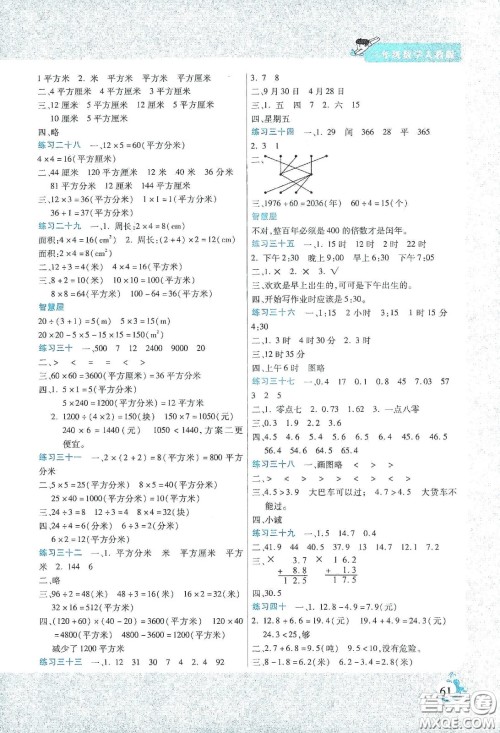 年级数学人教版
1平方方米 2. 米 平方米 平方米 平方米
二、平方厘米 4平方分米 4平方厘米 3平方厘米
三、12厘米 5平方厘米 10厘米 5平方厘米
四、略
练习二十八 一、12×5=60(平方分米)
4×4=16(平方米)
二、44厘米 120平方厘米 12米 9平方米 36分米
81平方分米 12平方米 36平方米
三、12×3=36(平方分米) 1×1=1(平方分米)
36÷1=37(平方分米)
练习二十九 一、1. 周长:2×4=8(cm)
面积:4×4=16(cm²) 2. 周长:(2+4)×2=12(cm)
面积:2×4=8(cm²)
二、12÷3=4(米) 4×4=16(平方米)
三、8+2=10(米) 10×10=100(平方米)
8×8=64(平方米) 100-64=36(平方米)
智慧屋
20÷(3+1)=5(m) 5×3=15(m)
20×15-5×5-15×15=150(m²)
练习三十 一、500 7 12 2400 9000 20
二、> < = = < >
三、60×60=3600(平方厘米)=36(平方分米)
四、1. 5×1=5(平方分米)
5×240=1200(平方分米)=12(平方米)
2. 1200÷(4×2)=150(块) 150×7=1050(元)
240×6=1440(元) 1050<1440,方案二更
便宜。
练习三十一 一、2×(2×2)=8(平方米)=800平方
分米
二、5×5=25(平方分米) 8×5=40(平方分米)
25×40=1000(平方分米)=10(平方米)
三、24÷3=8(分米) 24×8=192(平方分米)
四、24÷4=6(分米) 6×6=36(平方分米)
36×50=1800(平方分米)=18(平方米)
练习三十二 一、1. 平方分米 米 平方厘米 平方米 平
方米 2. 144 6
二、略
三、96÷2=48(米) 48÷3=16(米) 16×2=32(米)
32×16=512(平方米)
四、(120+60)×(40-20)=3600(平方米) 120×40
=4800(平方米) 4800-3600=1200(平方米)
减少了1200平方米
练习三十三 一、1. 12 31 30 7 4 2. 4 92
3. 7 8
二、9月30日 4月28日
三、1. 五 四 7 2. 六 15
四、星期五
练习三十四 一、1. 29 闰 366 28 平 365
2. 3 1
二、
三、1976+60=2036(年) 60÷4=15(个)
智慧屋
不对,整百年必须是400的倍数才是闰年。
练习三十五 一、1. 15时 12时 2时 22时
2. 下午2:30 晚上9:00 早上6:30 下午7:45
二、1. × 2. × 3. √
三、欢欢是早上出生的,可可是下午出生的。
四、开始写作业时应该是5:30。
练习三十六 一、1. 15时 2小时 3小时 1时15分
4:30
二、1. 3时 4时30分 2. 3 1时
三、12时35分
四、上午6时 图略
练习三十七 一、1. 0.4 17 0.1 0.8 45 7.03 57
3 2 2. 5
二、1. 零点七 2. 0.73 3. 一点八零
四、4.5 4.6 5.4 5.6 6.4 6.5 45.6 46.5
56.4 54.6 65.4 64.5
练习三十八 一、画图略 < > >
二、< < > > > <
三、2.4.5>3.9 大巴车可以过; 4.5>4.3 大货车不
能过。
四、小诚
练习三十九 一、1.5 14.7 0.4
二、41.9 44 40.5 37.9 13.9 10.1 31.8
三、× 3.7 × 13.9
+ 8.8 + 3.6
1 2.5 1 7.5
四、30.5
练习四十 一、1. 12.8-4.9=7.9(元)
2. 12.8+6.6=19.4(元) 3. 12.8+6.6=19.4(元)
二、2.7+6.4=9.1(米) 9.1>9.02,没有危险。
三、8-1.8=6.2(秒) 6.2+3.4=9.6(秒)
61
答案圈
MXQE.COM